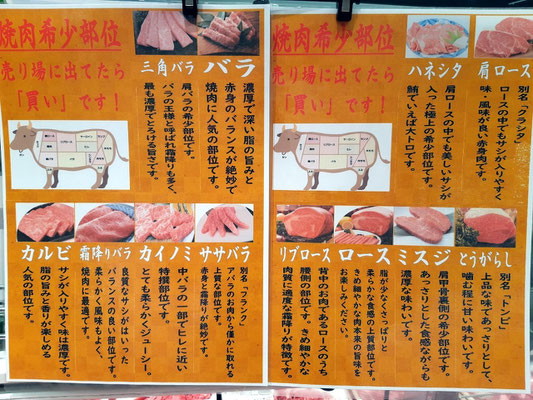 焼肉希少部位
売り場に出てたら
「買い」です!
バラ
濃厚で深い脂の旨みと
赤身のバランスが絶妙で
焼肉に人気の部位です。
三角バラ
肩バラの希少部位です。
バラの王様と呼ばれ霜降りも多く、
最も濃厚でとろける旨さです。
ササバラ
別名「フランク」
アバラのお肉から僅かに取れる
上質な部位です。
赤身と霜降りが絶妙です。
カイノミ
中バラの一部でヒレに近い
特撰部位です。
とても柔らかくジューシー。
霜降りバラ
良質なサシがはいった
バランスの良い部位です。
柔らかく風味もよく、
焼肉に最適です。
カルビ
サシが入りやすく味は濃厚です。
脂の旨みと香りが楽しめる
人気の部位です。
焼肉希少部位
売り場に出てたら
「買い」です!
肩ロース
別名「クラシタ」
ロースの中でもサシが入りやすく
味・風味が良い赤身肉です。
ハネシタ
肩ロースの中でも美しいサシが
入った極上の希少部位です。
鮪でいえば大トロです。
とうがらし
別名「トンビ」
上品な味であっさりとして、
噛む程に甘い味わいです。
ミスジ
肩甲骨裏側の希少部位です。
あっさりとした食感ながらも
濃厚な味わいです。
ロース
脂が少なくさっぱりと
柔らかな食感の上質部位です。
きめ細やかな肉本来の旨味を
お楽しみください。
リブロース
背中のお肉であるロースのうち
腰側の部位です。きめ細やかな
肉質に適度な霜降りが特徴です。